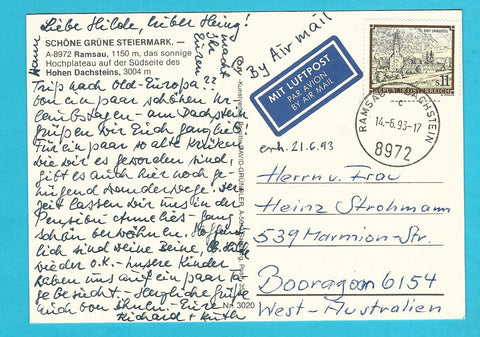 Liebe Hilde, lieber Heinz!
SCHÖNE GRÜNE STEIERMARK. —
A-8972 Ramsau, 1150 m, das sonnige
Hochplateau auf der Südseite des
Hohen Dachsteins, 3004 m
Wann macht Ihr Euren
Trip nach old-Europa??
Von ein paar schönen Ur-
laubstagen - am Dachstein
grüßen wir Euch ganz lieb!
Für ein paar so alte Krücken
wie wir es geworden sind,
gibt es auch hier noch ge-
nügend Wanderwege! Der
zeit lassen wir uns in der
Pension Annelies - ganz
schön verwöhnen. Hoffent-
lich sind Deine Beine, lb. Hilde
wieder o.k. - Unsere Kinder
haben uns auf ein paar Ta-
ge besucht - Herzliche Grüße
auch von ihnen. Eure
Richard + Ruth
Nr. 3020
By Air mail
MIT LUFTPOST
PAR AVION
BY AIR MAIL
S 11
REPUBLIK ÖSTERREICH
RAMSAU AM DACHSTEIN
c
14.-6.93-17
8972
erh. 21.6.93
Herrn u. Frau
Heinz Strohmann
539 Marmion-Str.
Booragoon 6154
West-Australien